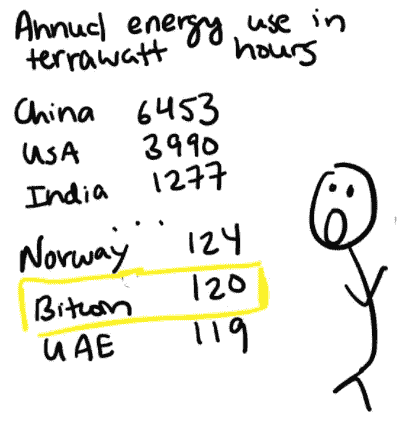 Annual energy use in
terrawatt hours
China 6453
USA 3990
India 1277
...
Norway 124
Bitcoin 120
UAE 119